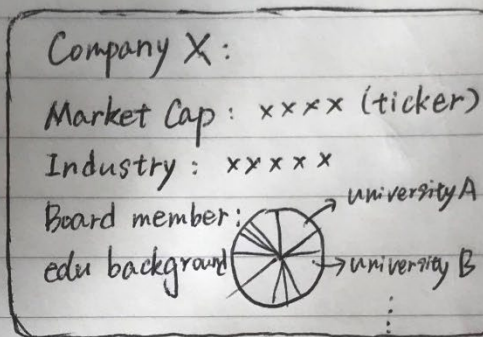 Company X:
Market Cap: xxxx (ticker)
Industry: xxxxx
Board member:
edu background
university A
university B